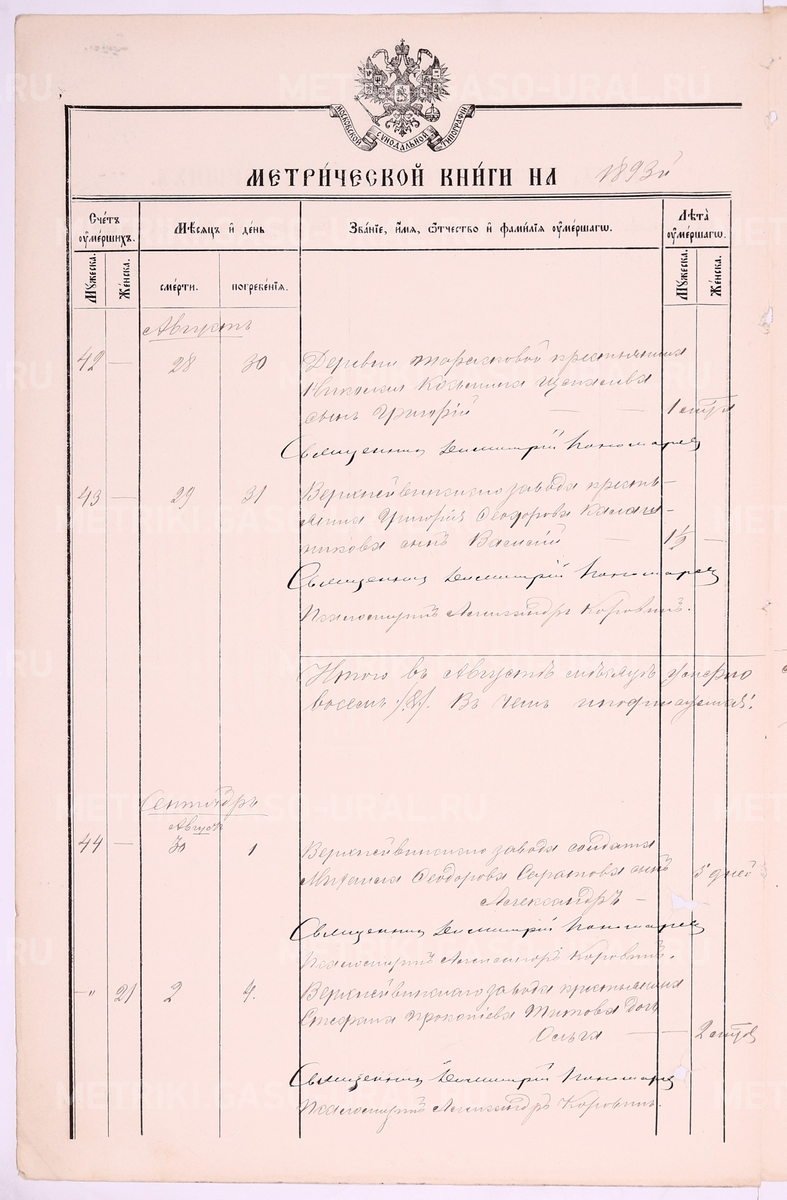 МОСКОВСКОЙ СѴНОДАЛЬНОЙ ТИПОГРАФІИ
МЕТРИ́ЧЕСКОЙ КНИ́ГИ НА 1893й
Счéтъ ᲂу҆мéршихъ.
Мѣ́сяцъ и҆ дéнь
Звáніе, и҆́мя, ѻ҆́тчество и҆ фамилі́я ᲂу҆мéршагѡ.
Лѣ́та ᲂу҆мéршагѡ.
Мꙋ́жеска.
Жéнска.
смéрти.
погребéнія.
Мꙋ́жеска.
Жéнска.
Августъ
42 — 28 30 Деревни Тарасковой крестьянина
Николая Козьмина
сынъ Григорій — — 1 
Священникъ Димитрій Пономарев
43 — 29 31 Верхнейвинскаго завода кресть-
янина Григорія Ѳеодорова Калаш-
никова сынъ Василій — 1½ —
Священникъ Димитрій Пономарев
Псаломщикъ Александръ Коровинъ.
Итого въ Августѣ мѣсяцѣ умерло
восемь /8/. Въ чемъ
Сентябрь
Августа
44 — 30 1 Верхнейвинскаго завода солдата
Михаила Ѳеодорова Саратова сынъ
Александръ — 5 дней
Священникъ Димитрій Пономарев
Псаломщикъ Александръ Коровинъ.
—" 21 2 4. Верхнейвинскаго завода крестьянина
Стефана Прокопіева Титова дочь
Ольга — — 2
Священникъ Димитрій Пономарев
Псаломщикъ Александръ Коровинъ.
METRIKI.GASO-URAL.RU